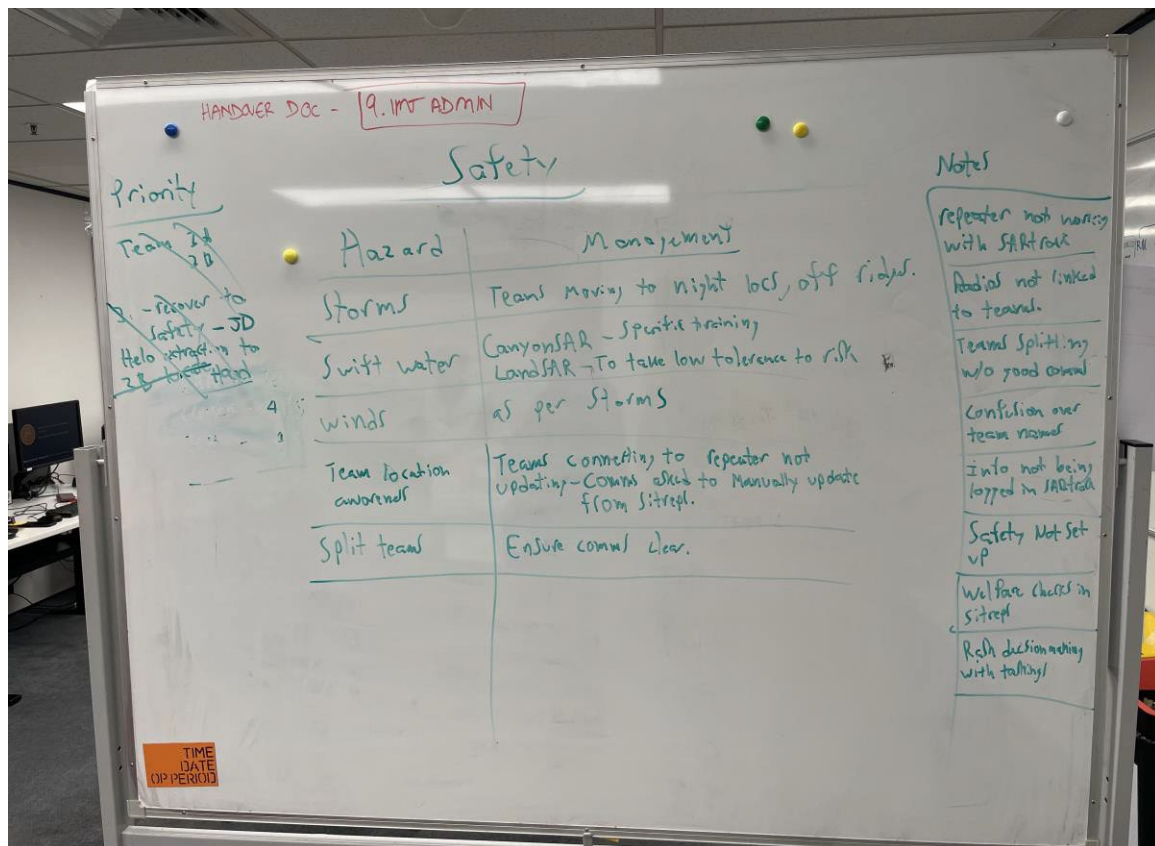 HANDOVER DOC - 9. IMT ADMIN
Safety
Priority
Team
2B
- recover to
Safety - JD
Helo extraction to
2B
Hazard
Management
Storms
Teams moving to night locs, off ridges.
Swift water
CanyonSAR - Specific training
LandSAR - To take low tolerance to risk
winds
as per Storms
Team location
awareness
Teams connecting to repeater not
updating - Comms asked to Manually update
from Sitreps.
Split teams
Ensure comms clear.
Notes
repeater not working
with SARtrack
Radios not linked
to teams.
Teams Splitting
w/o good comms
Confusion over
team names
Info not being
logged in SARtrack
Safety Not Set
up
Welfare checks in
sitreps
Risk decision making
with taskings
TIME
DATE
OP PERIOD